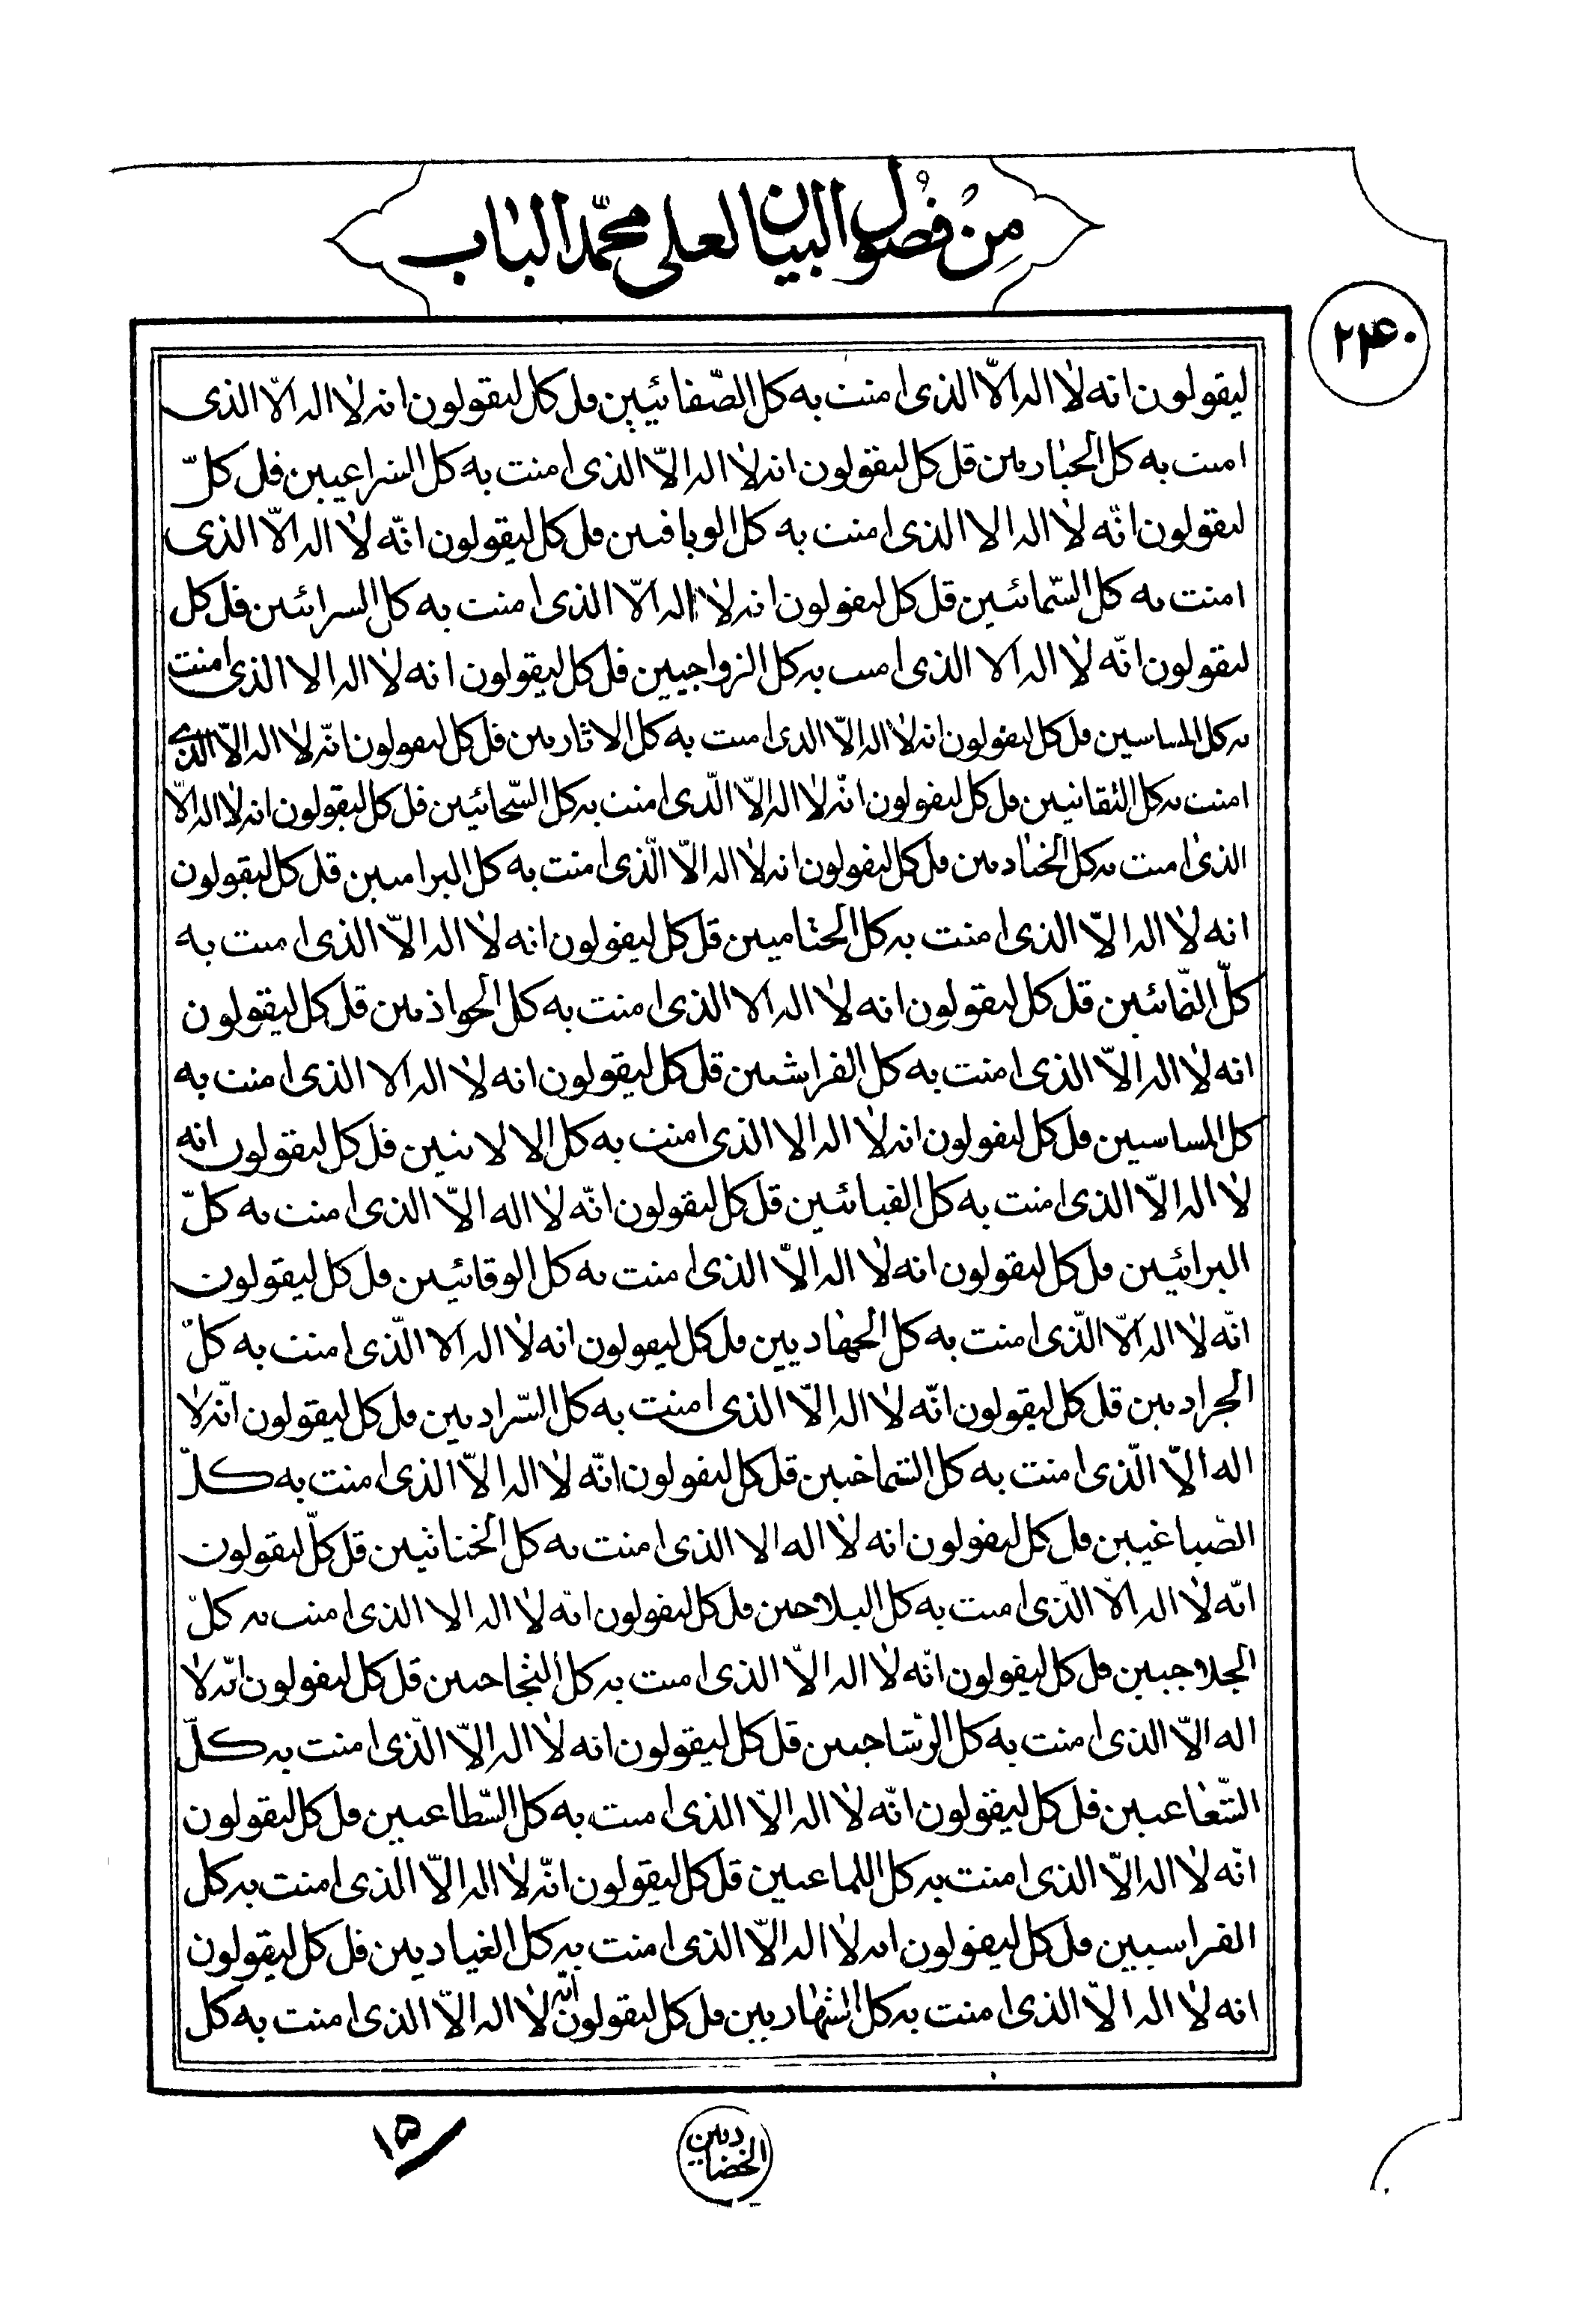 من فصول البیان لعلی محمّد الباب
۲۲۴۰
لیقولون انه لا اله الّا الذی امنت به کل الصّفائیین قل کل لیقولون انه لا اله الّا الذی
امنت به کل الجباریین قل کل لیقولون انه لا اله الّا الذی امنت به کل الشراعیین قل کلّ
لیقولون انّه لا اله الا الذی امنت به کل الوبافیین قل کل لیقولون انّه لا اله الّا الذی
امنت به کل السّمائیین قل کل لیقولون انه لا اله الّا الذی امنت به کل السرائیین قل کل
لیقولون انّه لا اله الا الذی امنت به کل الزواجیین قل کل لیقولون انه لا اله الا الذی امنت
به کل المساسیین قل کل لیقولون انه لا اله الّا الذی امنت به کل الاثاریین قل کل لیقولون انّه لا اله الّا الذی
امنت به کل الثقانیین قل کل لیقولون انّه لا اله الّا الّذی امنت به کل السّحائیین قل کل لیقولون انه لا اله الّا
الذی امنت به کل الخنادیین قل کل لیقولون انه لا اله الّا الّذی امنت به کل البرامیین قل کل لیقولون
انه لا اله الّا الذی امنت به کل الحتامیین قل کل لیقولون انه لا اله الّا الذی امنت به
کلّ النّمائیین قل کل لیقولون انه لا اله الا الذی امنت به کل الحواذیین قل کل لیقولون
انه لا اله الّا الذی امنت به کل الفراشیین قل کل لیقولون انه لا اله الا الذی امنت به
کل المساسیین قل کل لیقولون انه لا اله الا الذی امنت به کل الالانیین قل کل لیقولون انه
لا اله الّا الذی امنت به کل القبائیین قل کل لیقولون انّه لا اله الّا الذی امنت به کلّ
البرائیین قل کل لیقولون انه لا اله الّا الذی امنت به کل الوقائیین قل کل لیقولون
انّه لا اله الّا الّذی امنت به کل الجهادیین قل کل لیقولون انه لا اله الا الّذی امنت به کلّ
الجرادیین قل کل لیقولون انّه لا اله الّا الذی امنت به کل السّرادیین قل کل لیقولون انّه لا
اله الّا الّذی امنت به کل الشماخیین قل کل لیقولون انّه لا اله الّا الذی امنت به کلّ
الصّباغیین قل کل لیقولون انه لا اله الا الذی امنت به کل الخناثیین قل کلّ لیقولون
انّه لا اله الّا الّذی امنت به کل البلاحیین قل کل لیقولون انّه لا اله الا الذی امنت به کلّ
الجلاجیین قل کل لیقولون انّه لا اله الّا الذی امنت به کل الثجاجیین قل کل لیقولون انّه لا
اله الّا الذی امنت به کل الرشاجیین قل کل لیقولون انه لا اله الّا الّذی امنت به کلّ
الشّعاعیین قل کل لیقولون انّه لا اله الّا الذی امنت به کل السّطاعیین قل کل لیقولون
انّه لا اله الّا الذی امنت به کل اللماعیین قل کل لیقولون انّه لا اله الّا الذی امنت به کل
الفراسیین قل کل لیقولون انه لا اله الّا الذی امنت به کل الغیادیین قل کل لیقولون
انه لا اله الّا الذی امنت به کل الشهاریین قل کل لیقولون انّه لا اله الّا الذی امنت به کل
الخضادیین
۱۵